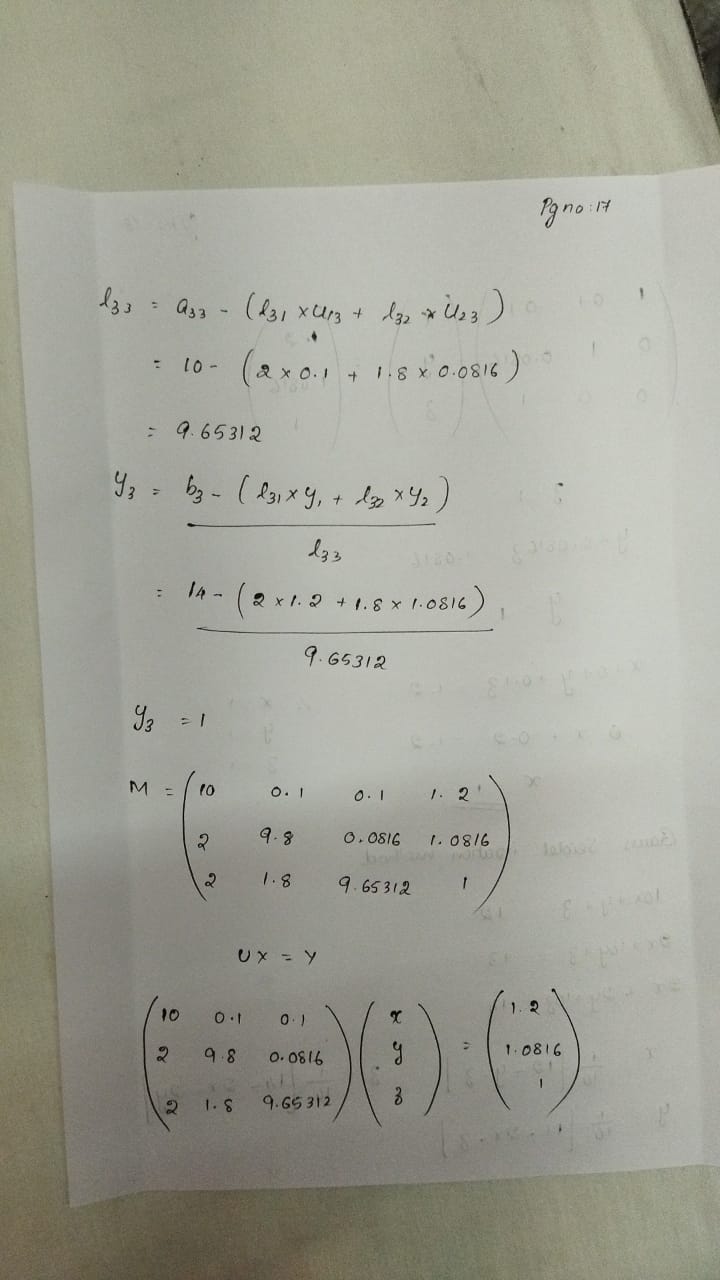 Pg no: 17
l33 = a33 - (l31 × u13 + l32 × u23)
= 10 - (2 × 0.1 + 1.8 × 0.0816)
= 9.65312
y3 = b3 - (l31 × y1 + l32 × y2)
l33
= 14 - (2 × 1.2 + 1.8 × 1.0816)
9.65312
y3 = 1
M = (10 0.1 0.1 1.2
2 9.8 0.0816 1.0816
2 1.8 9.65312 1)
UX = Y
(10 0.1 0.1) (x) = (1.2)
(2 9.8 0.0816) (y) (1.0816)
(2 1.8 9.65312) (z) (1)